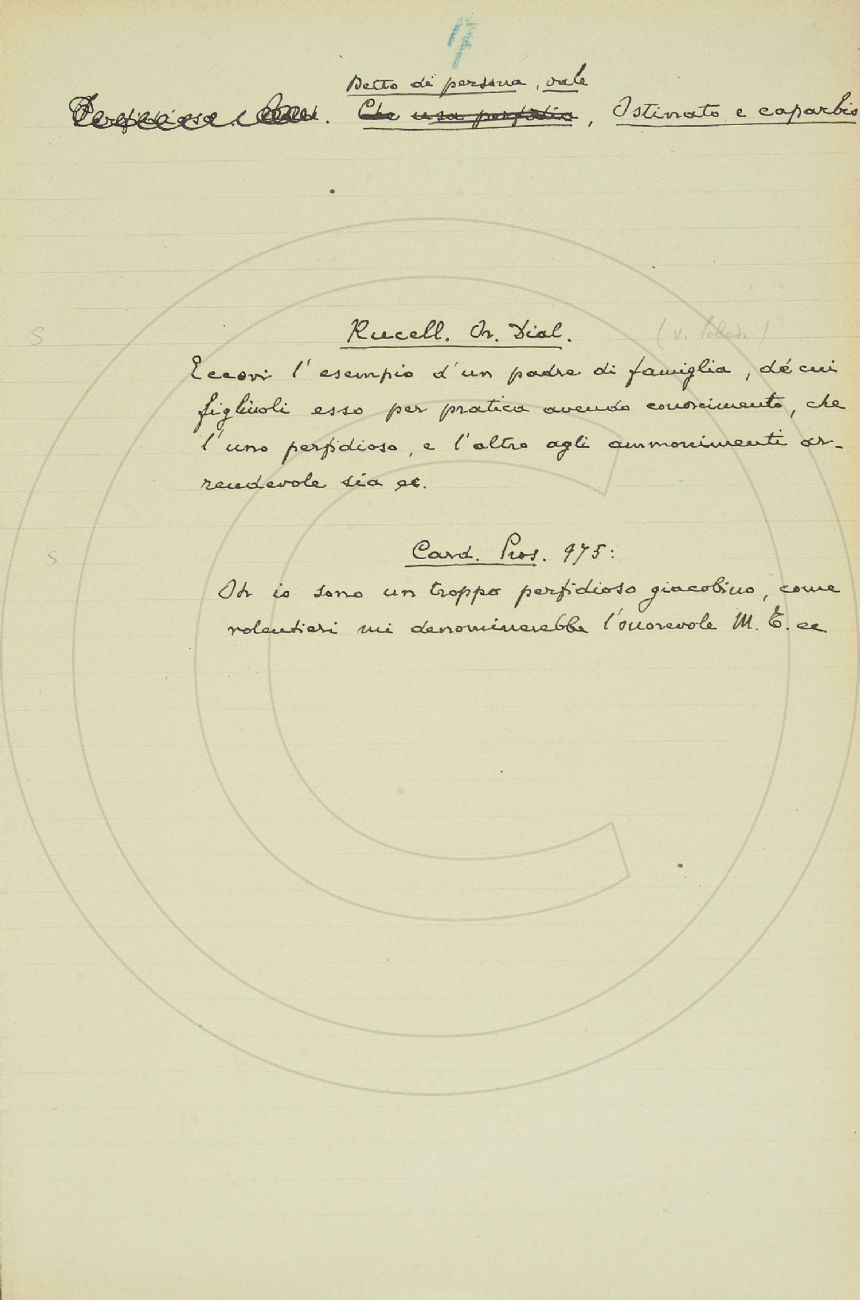 17
Detto di persona, vale
Perfidioso. Che usa perfidia, Ostinato e caparbio
Rucell. Or. Dial. (v.
S
Eccovi l'esempio d'un padre di famiglia, de' cui
figliuoli esso per pratica avendo conoscimento, che
l'uno perfidioso, e l'altro agli ammonimenti ar-
rendevole sia ec.
S
Card. Pros. 975:
Or io sono un troppo perfidioso giacobino, come
volentieri mi denominerebbe l'onorevole M. T. ec.